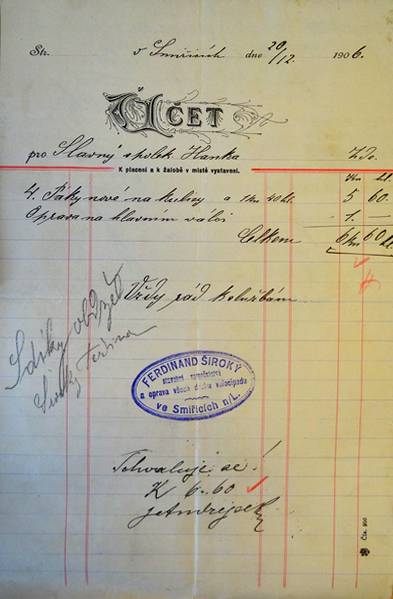 Str. v Smiřicích dne 20/12. 1906.
ÚČET
pro Slavný spolek Hanka z do.
K placení a k žalobě v místě vystavení.
4. Páky nové na kulisy a 1 kr 40 hl. 5 60.
Oprava na hlavním válci 1. —
Celkem 6 60
Vždy rád k službám
S díky obdržel
Široký Ferdina
FERDINAND ŠIROKÝ
a oprava všech druhů velocipedů
ve Smiřicích n/L.
Schvaluje se!
K 6.60
Čís. 900